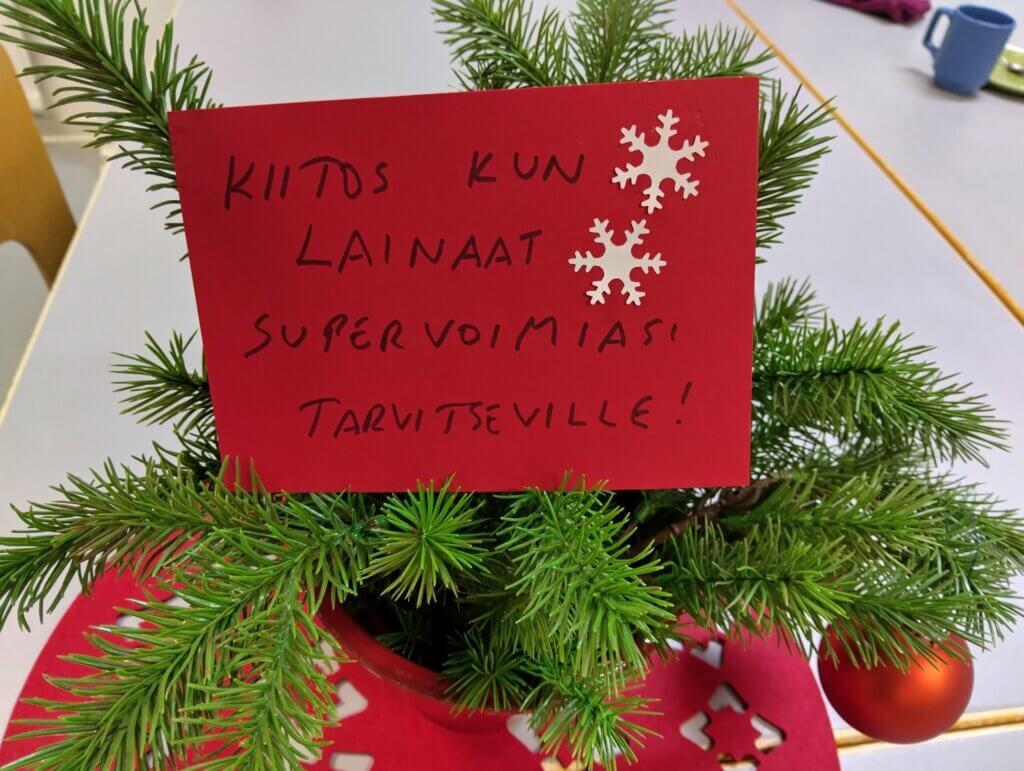 KIITOS KUN
LAINAAT
SUPERVOIMIASI
TARVITSEVILLE!